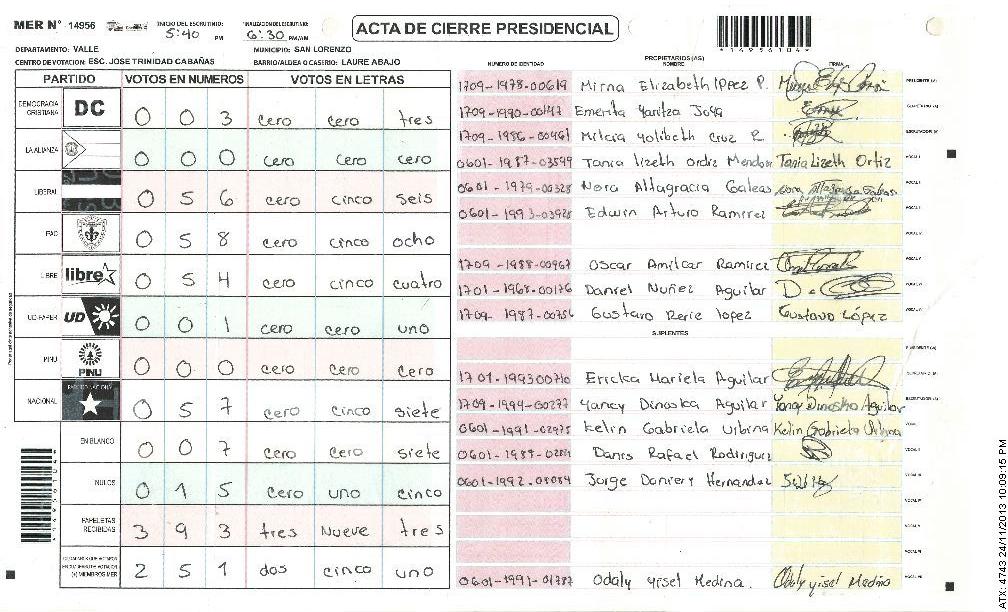 MER Nº 14956 INICIO DEL ESCRUTINIO: 5:40 PM FINALIZACION DEL ESCRUTINIO: 6:30 PM/AM
ACTA DE CIERRE PRESIDENCIAL
*14956104*
DEPARTAMENTO: VALLE MUNICIPIO: SAN LORENZO
CENTRO DE VOTACION: ESC. JOSE TRINIDAD CABAÑAS BARRIO/ALDEA O CASERIO: LAURE ABAJO
PARTIDO VOTOS EN NUMEROS VOTOS EN LETRAS
DEMOCRACIA CRISTIANA DC 0 0 3 cero cero tres
LA ALIANZA 0 0 0 cero cero cero
LIBERAL 0 5 6 cero cinco seis
PAC 0 5 8 cero cinco ocho
LIBRE libre 0 5 4 cero cinco cuatro
UD-FAPER UD 0 0 1 cero cero uno
PINU PINU 0 0 0 cero cero cero
NACIONAL PARTIDO NACIONAL 0 5 7 cero cinco siete
EN BLANCO 0 0 7 cero cero siete
NULOS 0 1 5 cero uno cinco
PAPELETAS RECIBIDAS 3 9 3 tres Nueve tres
CIUDADANOS QUE VOTARON
(+) MIEMBROS MER 2 5 1 dos cinco uno
PROPIETARIOS (AS)
NUMERO DE IDENTIDAD NOMBRE FIRMA
1709-1978-00619 Mirna Elizabeth P. PRESIDENTE (A)
1709-1990-00147 Emerita Yaritza Joya SECRETARIO (A)
1709-1986-00461 Yolibeth Cruz ESCRUTADOR (A)
0601-1987-03599 Tania lizeth Ordiz Mendoza Tania Lizeth Ortiz VOCAL I
0601-1979-00328 Nora Altagracia Galeas VOCAL II
0601-1993-03928 Edwin Arturo Ramirez
1709-1988-00967 Oscar Amilcar Ramirez
1701-1968-00176 Daniel Nuñez Aguilar
1709-1987-00756 Gustavo Rene lopez Gustavo López
SUPLENTES
PRESIDENTE (A)
1701-199300710 Ericka Mariela Aguilar SECRETARIO (A)
1709-1994-00277 Yancy Dinoska Aguilar Yancy Dinoska Aguilar ESCRUTADOR (A)
0601-1991-02975 Kelin Gabriela Urbina Kelin Gabriela Urbina VOCAL I
Rafael Rodriguez VOCAL II
Jorge Hernandez VOCAL III
0601-1991-01787 Odaly yisel Medina. Odaly yisel Medina
ATX: 4743 24/11/2013 10:09:15 PM